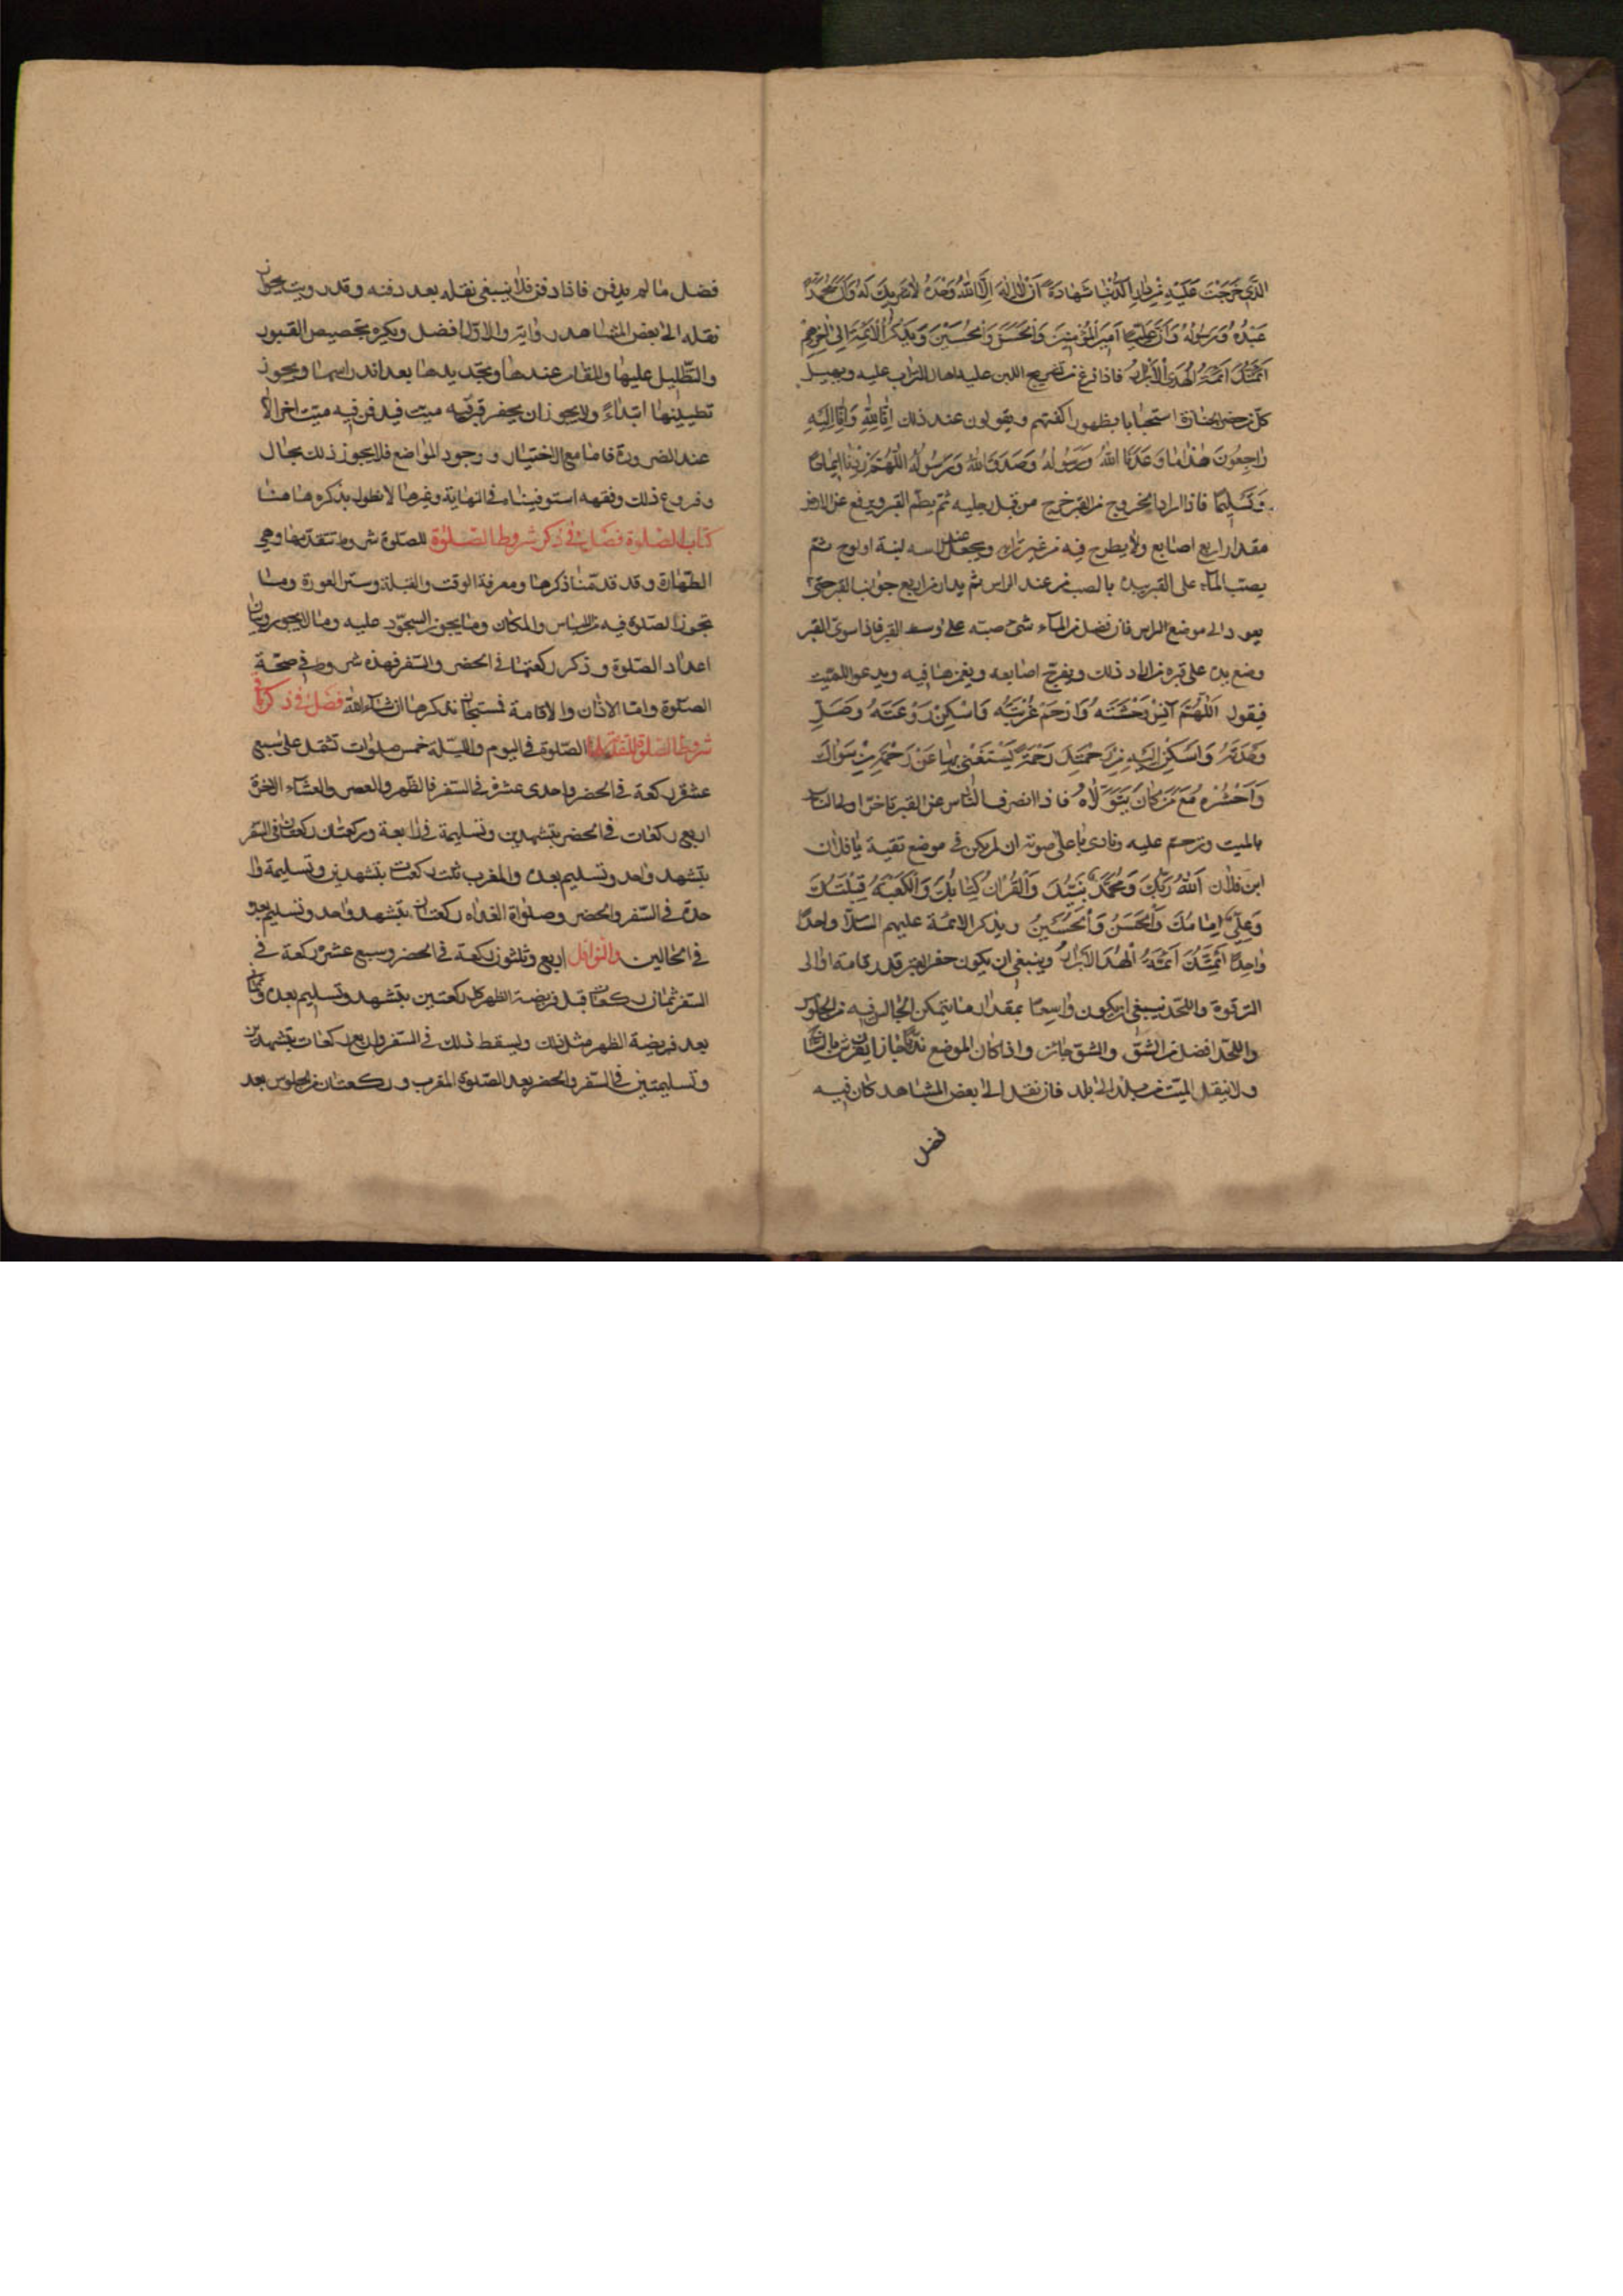 الذي خرجت عليه من دار الدنيا شهادة ان لا اله الا الله وحده لا شريك له وان محمدا
عبده ورسوله وان عليا امير المؤمنين والحسن والحسين ويذكر الائمة الى اخرهم
ائمتك ائمة الهدى الابرار فاذا فرغ من تضريح اللبن عليه اهال التراب عليه ويهيل
كل من حضر الجنازة استحبابا بظهور اكفهم ويقولون عند ذلك انا لله وانا اليه
راجعون هذا ما وعدنا الله ورسوله وصدق الله ورسوله اللهم زدنا ايمانا
وتسليما فاذا اراد الخروج من القبر خرج من قبل رجليه ثم يطم القبر ويرفع عن الارض
مقدار اربع اصابع ولا يطرح فيه من غير ترابه ويجعل عند راسه لبنة او لوح ثم
يصب الماء على القبر يبدء بالصب من عند الراس ثم يدار من اربع جوانب القبر حتى
يعود الى موضع الراس فان فضل من الماء شئ صبه على وسط القبر فاذا سوى القبر
وضع يده على قبره من اراد ذلك ويفرج اصابعه ويغمزها فيه ويدعو للميت
فيقول اللهم آنس وحشته وارحم غربته واسكن روعته وصل
وحدته واسكن اليه من رحمتك رحمة يستغنى بها عن رحمة من سواك
واحشره مع من كان يتولاه فاذا انصرف الناس عن القبر تاخر اولى الناس
بالميت وترحم عليه ونادى باعلى صوته ان لم يكن في موضع تقية يا فلان
ابن فلان الله ربك ومحمد نبيك والقران كتابك والكعبة قبلتك
وعلي امامك والحسن والحسين ويذكر الائمة عليهم السلام واحدا
واحدا ائمتك ائمة الهدى الابرار وينبغي ان يكون حفر القبر قدر قامة او الى
الترقوة واللحد ينبغي ان يكون واسعا بمقدار ما يتمكن الجالس فيه من الجلوس
واللحد افضل من الشق والشق جائز واذا كان الموضع نديا جاز ان يفرش بالساج
ولا ينقل الميت من بلد الى بلد فان نقل الى بعض المشاهد كان فيه
فضل
فضل ما لم يدفن فاذا دفن فلا ينبغي نقله بعد دفنه وقد رويت بجواز
نقله الى بعض المشاهد رواية والاول افضل ويكره تجصيص القبور
والتظليل عليها والمقام عندها وتجديدها بعد اندراسها ويجوز
تطيينها ابتداء ولا يجوز ان يحفر قبر فيه ميت فيدفن فيه ميت اخر الا
عند الضرورة فاما مع الاختيار ووجود المواضع فلا يجوز ذلك بحال
وفروع ذلك وفقهه استوفيناه في النهاية وغيرها لا نطول بذكره هاهنا
كتاب الصلوة فصل في ذكر شروط الصلوة للصلوة شروط تتقدمها وهي
الطهارة وقد قدمنا ذكرها ومعرفة الوقت والقبلة وستر العورة وما
تجوز الصلوة فيه من اللباس والمكان وما يجوز السجود عليه وما لا يجوز وبيان
اعداد الصلوة وذكر ركعتها في الحضر والسفر فهذه شروط في صحة
الصلوة واما الاذان والاقامة فمستحبان نذكرها ان شاء الله فصل في ذكر
شروط الصلوة المتقدمة الصلوة في اليوم والليلة خمس صلوات تشمل على سبع
عشرة ركعة في الحضر واحدى عشرة في السفر فالظهر والعصر والعشاء الاخرة
اربع ركعات في الحضر بتشهدين وتسليمة في الرابعة وركعتان ركعتان في السفر
بتشهد واحد وتسليم بعده والمغرب ثلث ركعات بتشهدين وتسليمة وا
حدة في السفر والحضر وصلوة الغداة ركعتان بتشهد واحد وتسليم بعده
في الحالين والنوافل اربع وثلثون ركعة في الحضر وسبع عشرة ركعة في
السفر ثمان ركعات قبل فريضة الظهر كل ركعتين بتشهد وتسليم بعده وثمان
بعد فريضة الظهر مثل ذلك ويسقط ذلك في السفر واربع ركعات بتشهدين
وتسليمتين في السفر والحضر بعد الصلوة المغرب وركعتان من جلوس بعد